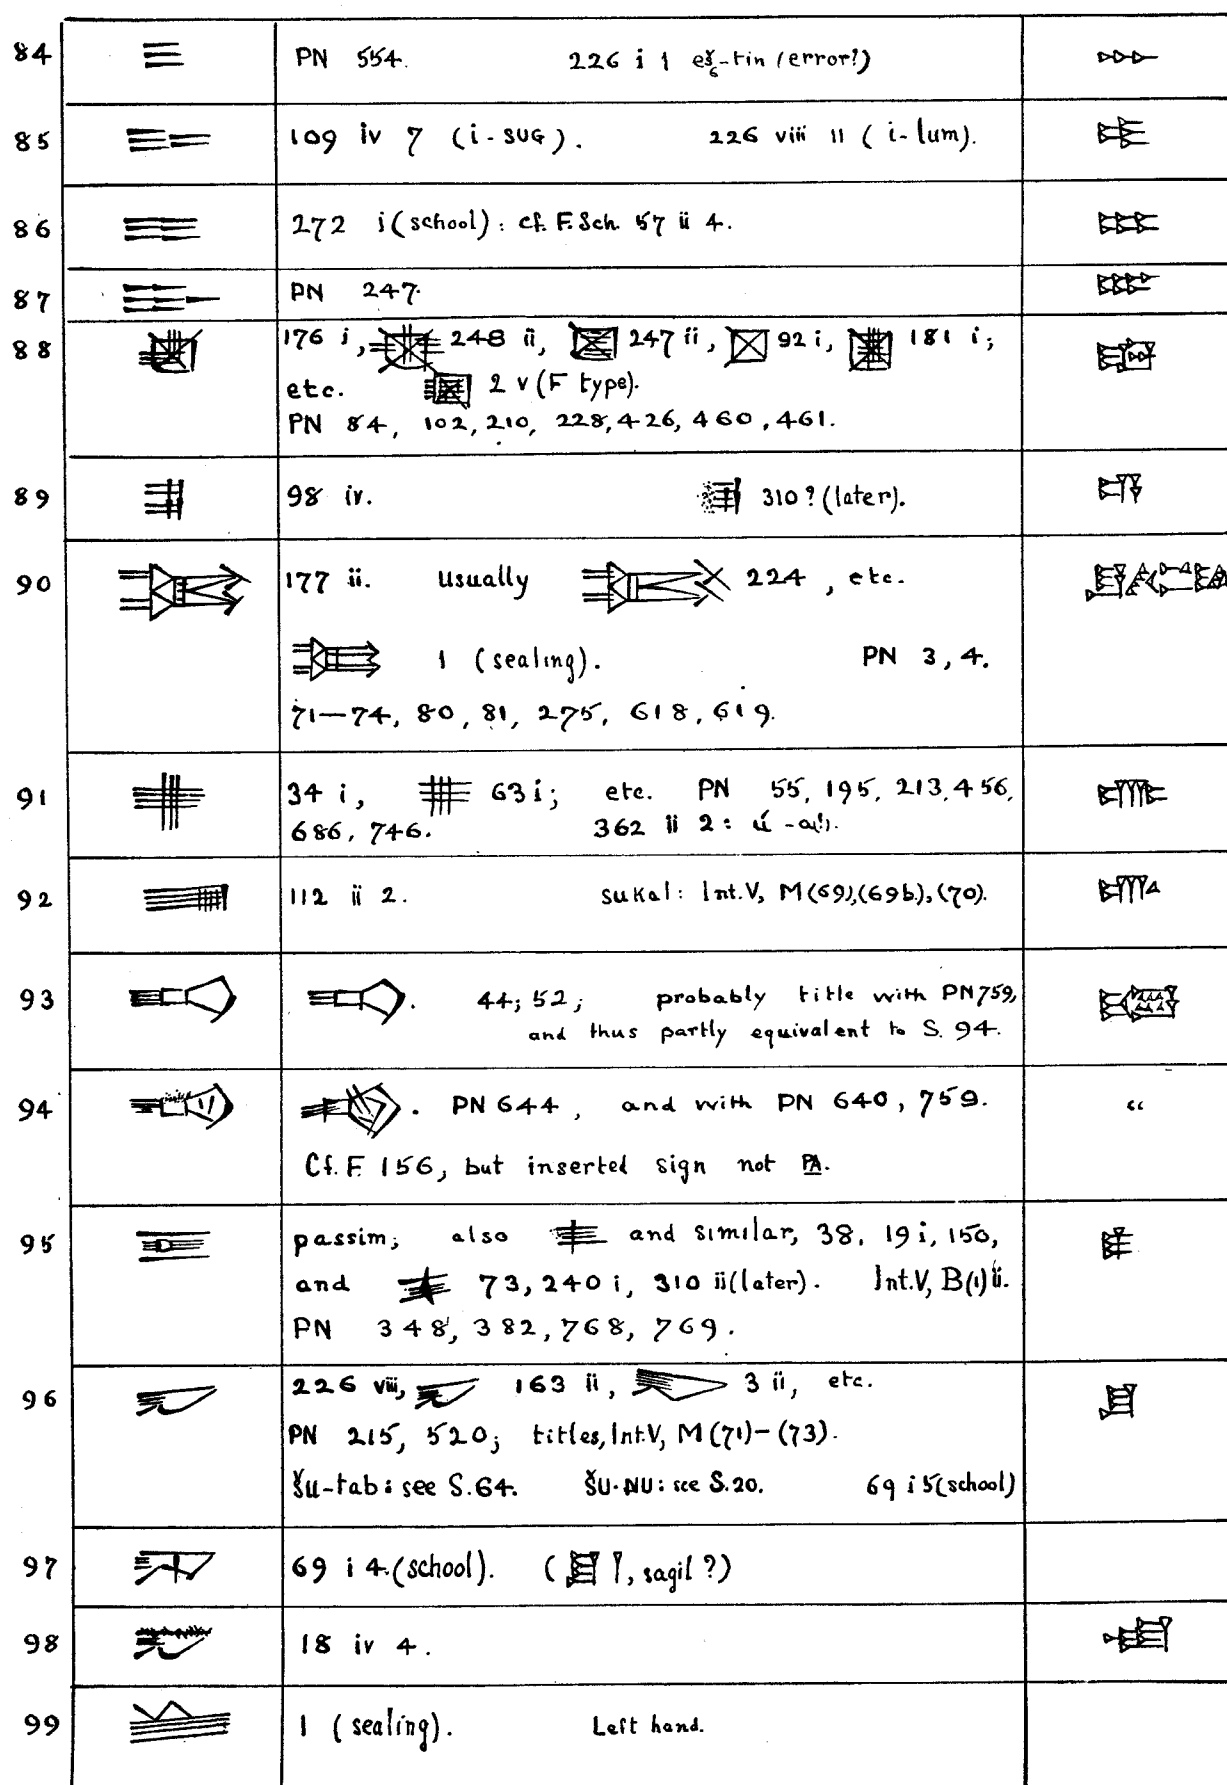 84 PN 554. 226 i 1 eš₆-tin (error?)
85 109 iv 7 (i-SUG). 226 viii 11 (i-lum).
86 272 i (school): cf. F. Sch. 57 ii 4.
87 PN 247.
88 176 i, 248 ii, 247 ii, 92 i, 181 i;
etc. 2 v (F type).
PN 84, 102, 210, 228, 426, 460, 461.
89 98 iv. 310? (later).
90 177 ii. Usually 224, etc.
1 (sealing). PN 3, 4.
71—74, 80, 81, 275, 618, 619.
91 34 i, 63 i; etc. PN 55, 195, 213, 456,
686, 746. 362 ii 2:
92 112 ii 2. sukal: Int.V, M(69),(69b),(70).
93 44; 52; probably title with PN 759,
and thus partly equivalent to S. 94.
94 PN 644, and with PN 640, 759. “
Cf. F 156, but inserted sign not PA.
95 passim; also and similar, 38, 19 i, 150,
and 73, 240 i, 310 ii (later). Int.V, B(1) ii.
PN 348, 382, 768, 769.
96 226 viii, 163 ii, 3 ii, etc.
PN 215, 520; titles, Int.V, M(71)-(73).
ŠU-tab: see S. 64. ŠU-NU: see S. 20. 69 i 5 (school)
97 69 i 4. (school). ( , sagil?)
98 18 iv 4.
99 1 (sealing). Left hand.